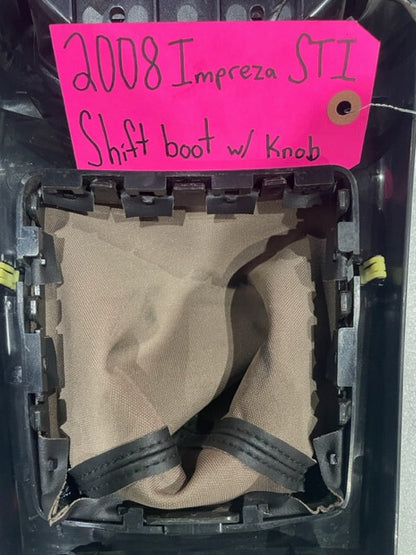 2008 Impreza STI
Shift boot w/ Knob